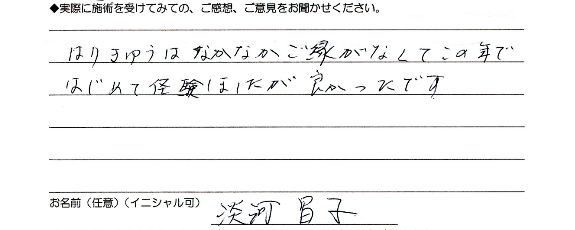 ◆実際に施術を受けてみての、ご感想、ご意見をお聞かせください。
はりきゅうは なかなかご縁がなくてこの年で
はじめて経験しましたが 良かったです
お名前（任意）（イニシャル可） 淡河 昌子